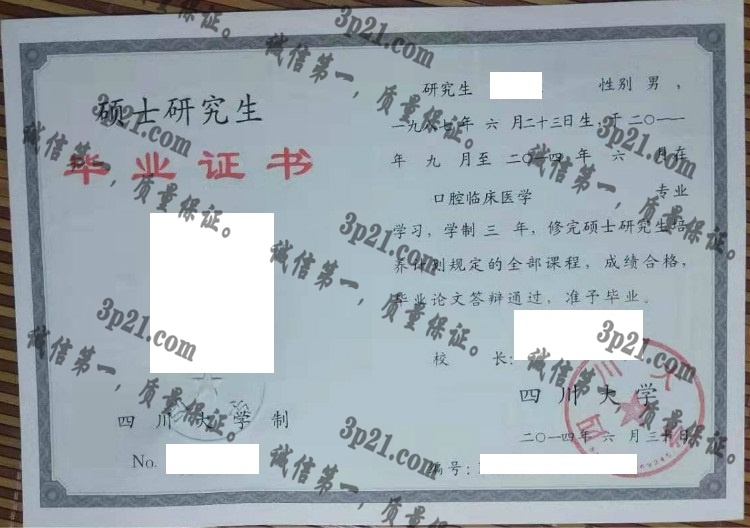 硕士研究生
毕业证书
四川大学制
No.
研究生 性别 男，
一九八七年 六 月二十三日生，于二〇一一
年 九 月至 二〇一四 年 六 月在
口腔临床医学 专业
学习，学制 三 年，修完硕士研究生培
养计划规定的全部课程，成绩合格，
毕业论文答辩通过，准予毕业。
校 长：
四川大学
二〇一四年 六 月三十日
编号：
3p21.com
诚信第一，质量保证。
3p21.com
诚信第一，质量保证。
3p21.com
诚信第一，质量保证。
3p21.com
诚信第一，质量保证。
3p21.com
诚信第一，质量保证。
3p21.com
诚信第一，质量保证。
3p21.com
诚信第一，质量保证。
3p21.com
诚信第一，质量保证。